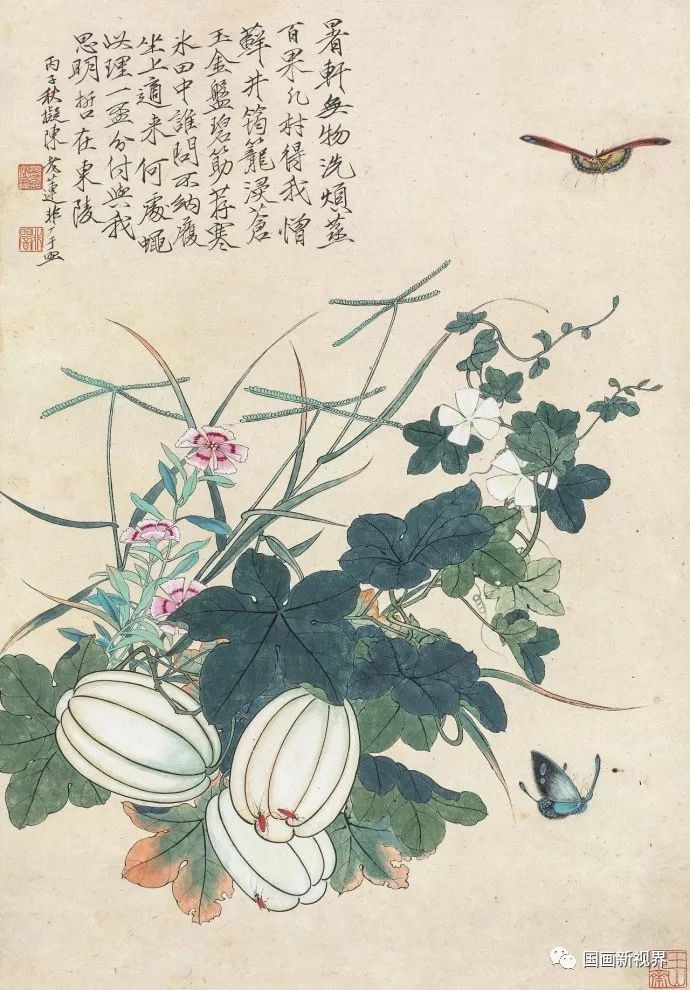 暑軒無物洗煩蒸
百果凡材得我憎
蘚井筠籠浸蒼
玉金盤碧筯荐寒
氷田中誰問不納履
坐上適来何處蠅
此理一盃分付與我
思明哲在東陵
丙子秋擬陳老蓮非厂于照
国画新视界